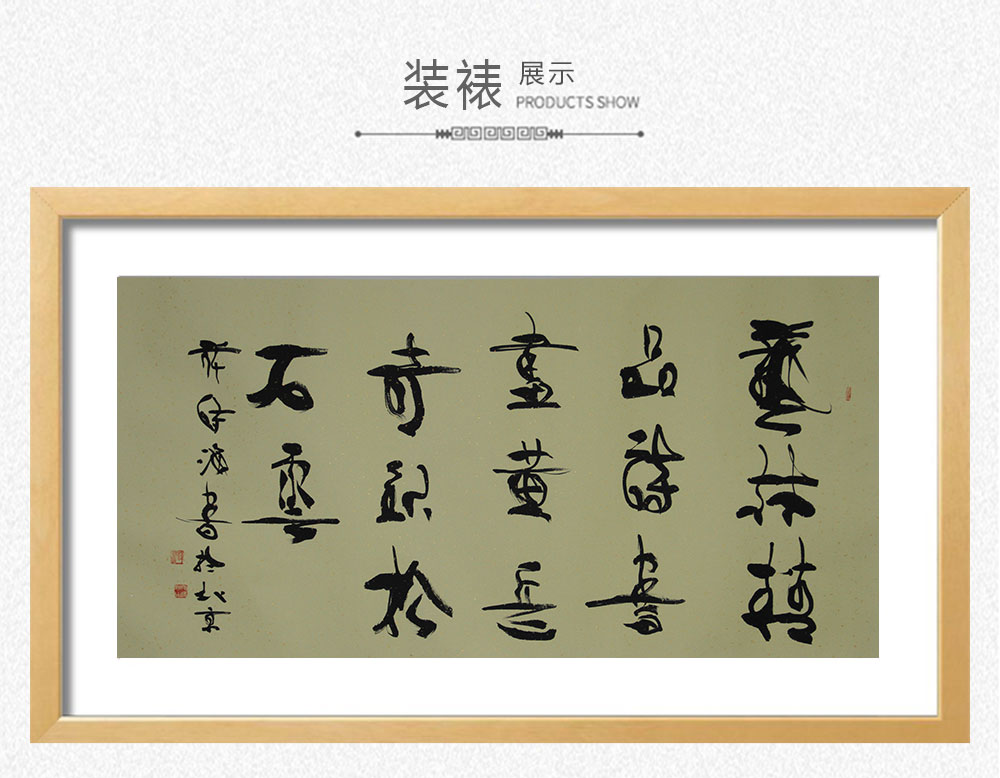 装裱 展示
PRODUCTS SHOW
藝林精
品詩書
畫黃岳
奇觀松
石雲
海書於北京